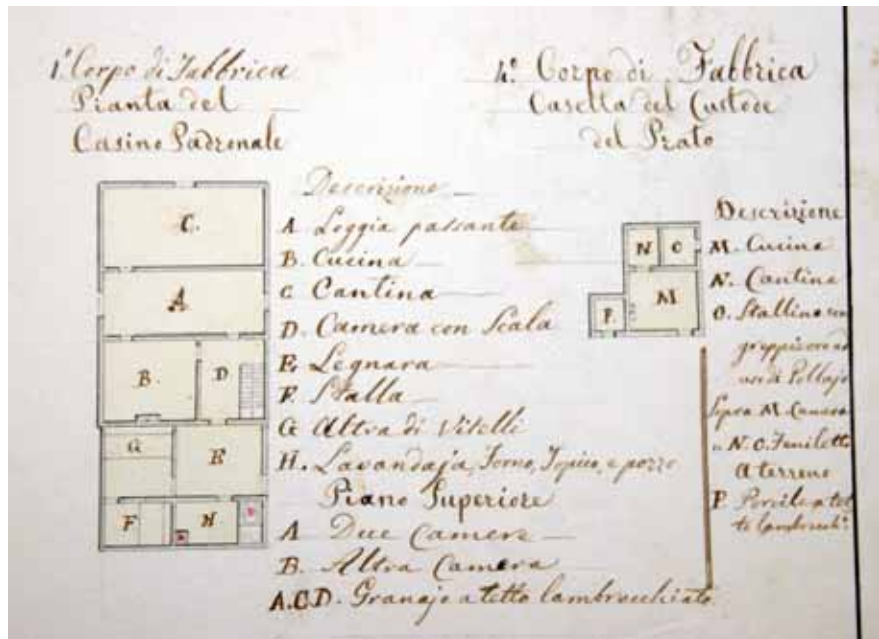 1.º Corpo di Fabbrica
Pianta del
Casino Padronale
Descrizione
A Loggia passante
B. Cucina
C Cantina
D. Camera con Scala
E. Legnara
F. Stalla
G Altra di Vitelli
H. Lavandaja, Forno, e pozzo
Piano Superiore
A Due Camere
B. Altra Camera
A.C.D. Granajo a tetto lambrecchiato
C.
A
B.
D
G
E
F
H
4.º Corpo di Fabbrica
Casella del Custode
del Prato
Descrizione
M. Cucina
N. Cantina
O. Stallino con
uso di Pollajo
Sopra M. Camera
N. O. Feniletto
A terreno
P Porcile a tet
N
O
M
P.